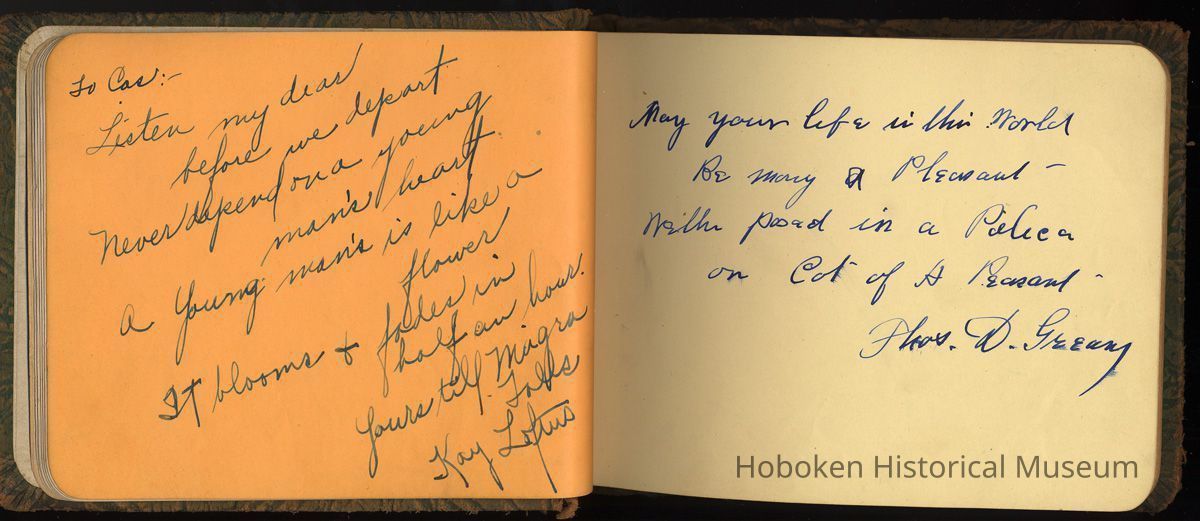 To Cas:-
Listen my dear
before we depart
Never depend on a young
man's heart.
A young man's is like a
flower
It blooms & fades in
half an hour.
Yours till Niagra
Falls
Kay Loftus
May your life in this World
Be many a Pleasant -
in a
or Cot of A Peasant -
Thos. D.
Hoboken Historical Museum